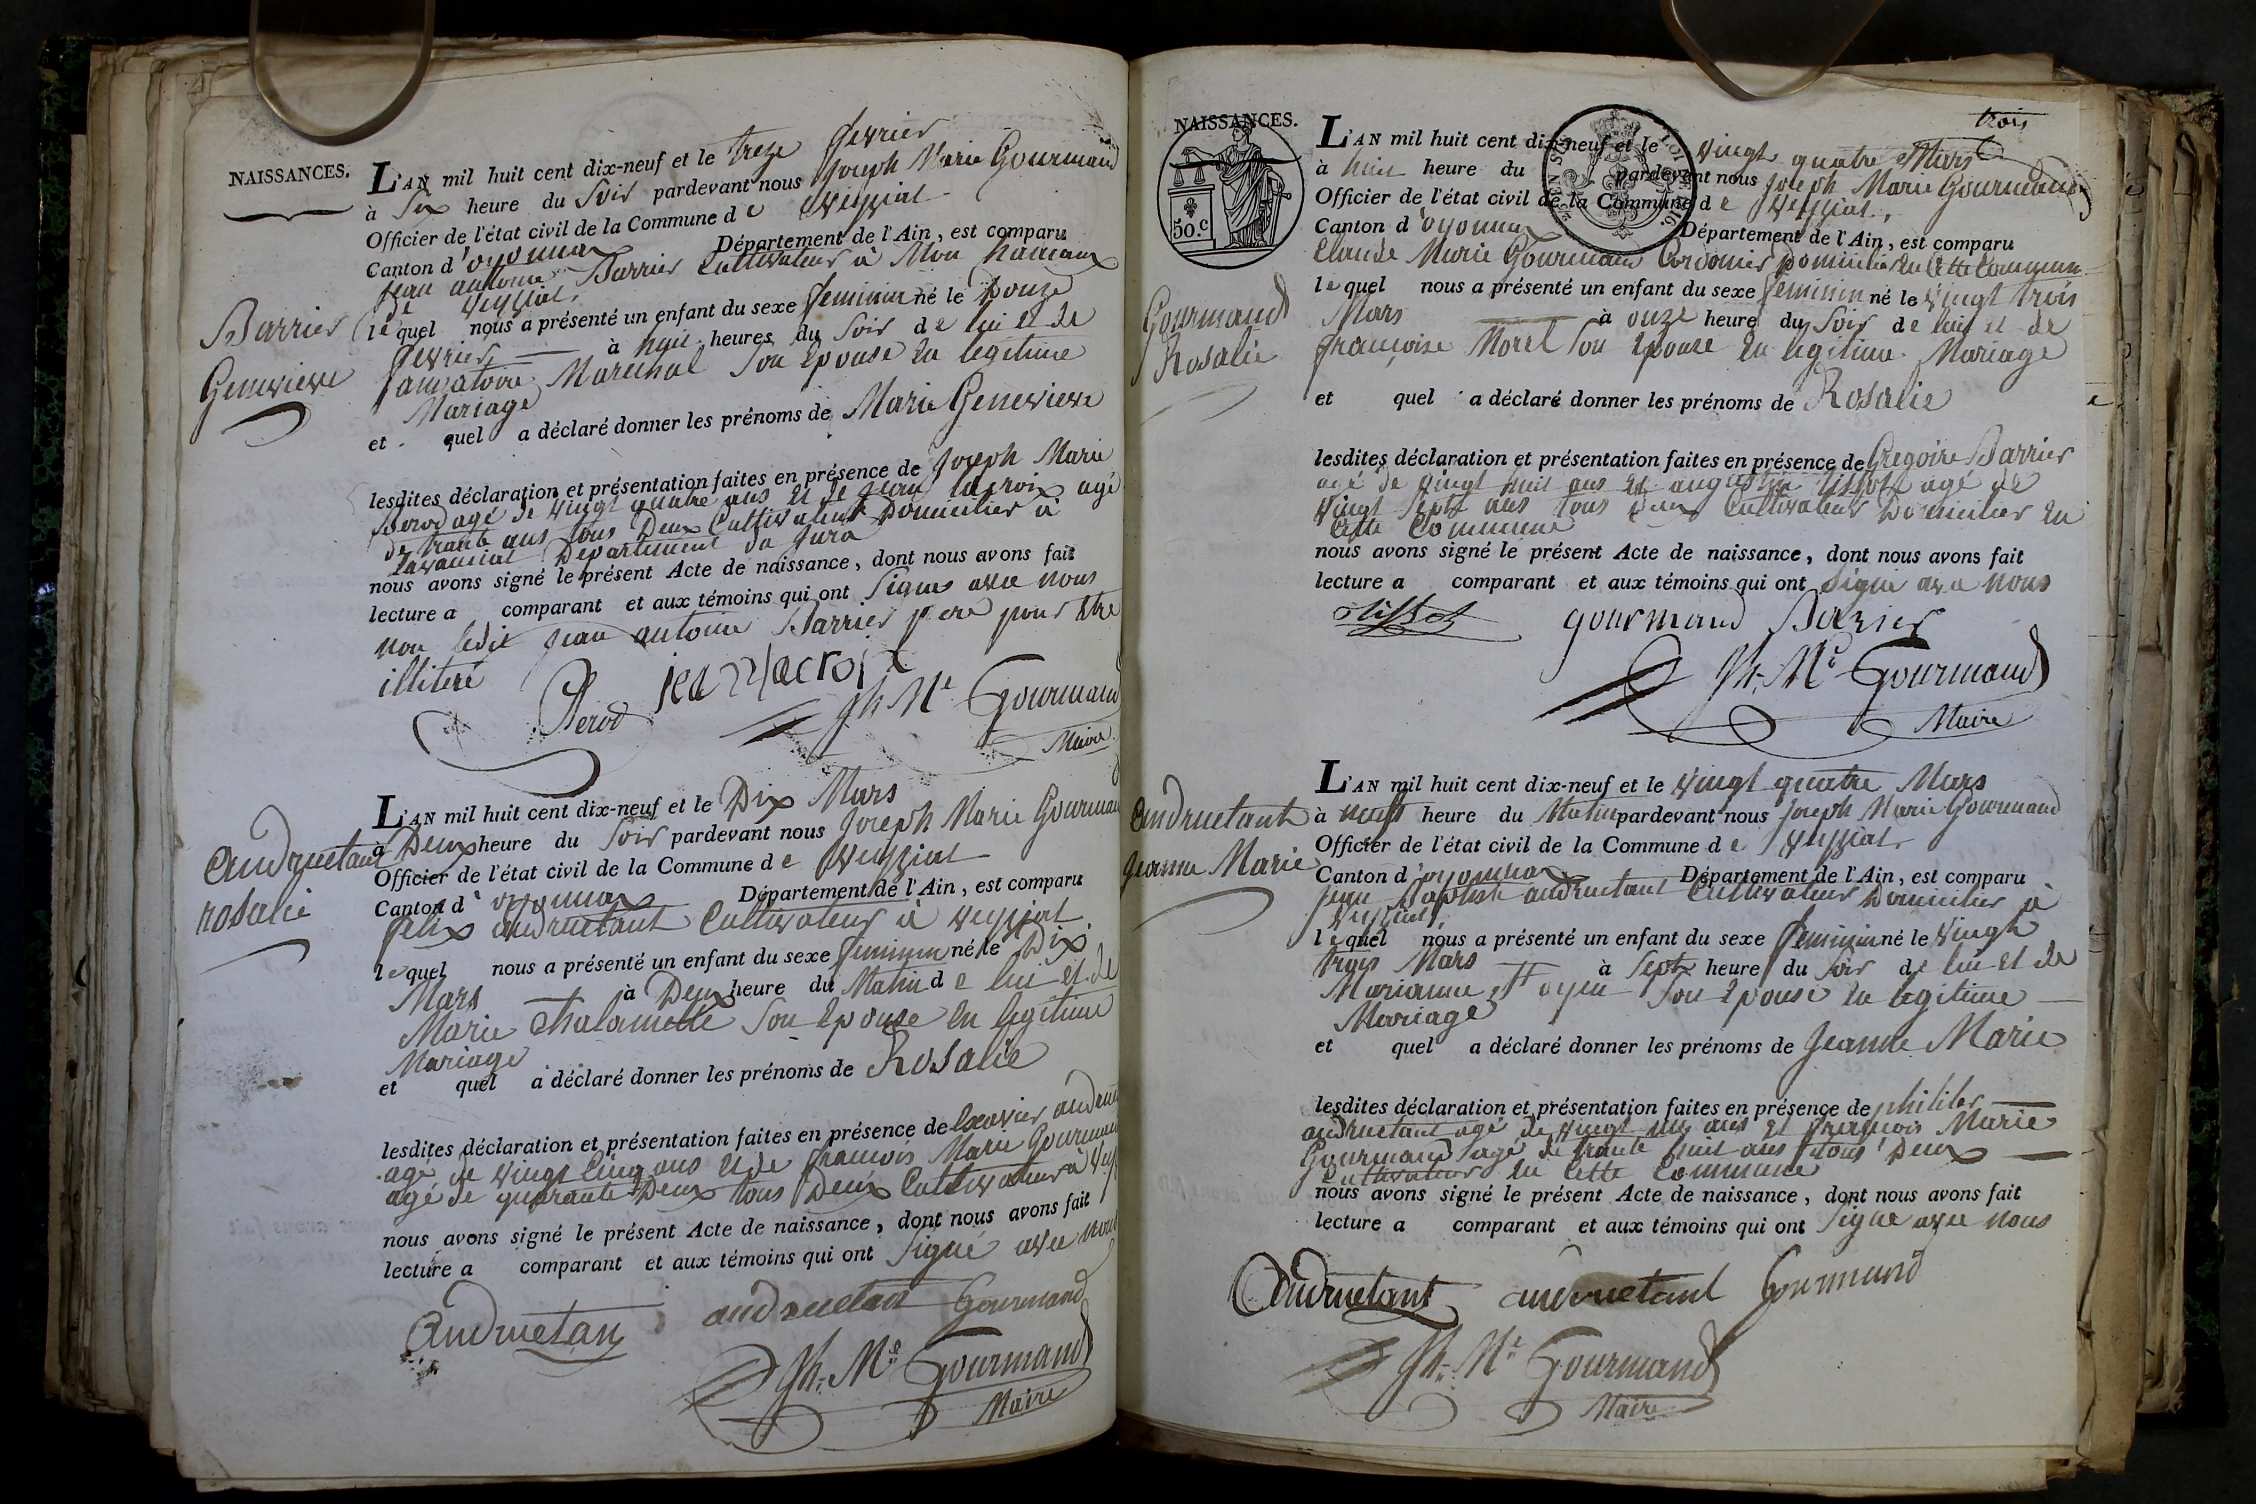 NAISSANCES.
L'AN mil huit cent dix-neuf et le treze fevrier
à Six heure du Soir pardevant nous Joseph Marie Gourmand
Officier de l'état civil de la Commune de Veyziat
Canton d'oyonnax Département de l'Ain, est comparu
jean antoine Barrier Cultivateur à Mon hameaux
de Veyziat,
Barrier
Genevieve
lequel nous a présenté un enfant du sexe feminin né le Douze
fevrier, à huit heures du Soir de lui et de
Marechal Son Epouse En legitime
Mariage
et quel a déclaré donner les prénoms de Marie Genevieve
lesdites déclaration et présentation faites en présence de Joseph Marie
Perod agé de vingt quatre ans et de jean lacroix agé
de trante ans tous Deux Cultivateur Domicilier à
Departement du jura
nous avons signé le présent Acte de naissance, dont nous avons fait
lecture a comparant et aux témoins qui ont Signé avec nous
non ledit jean antoine Barrier pere pour Etre
illiteré
Perod jean lacroix
Jh. Me Gourmand
Maire
andruetant
rosalie
L'AN mil huit cent dix-neuf et le Dix Mars
à Deux heure du Soir pardevant nous Joseph Marie Gourmand
Officier de l'état civil de la Commune de Veyziat
Canton d'oyonnax Département de l'Ain, est comparu
felix andruetant Cultivateur à Veyziat
lequel nous a présenté un enfant du sexe feminin né le Dix
Mars à Deux heure du Matin de lui et de
Marie Chalamelle Son Epouse en legitime
Mariage
et quel a déclaré donner les prénoms de Rosalie
lesdites déclaration et présentation faites en présence de
agé de vingt Cinq ans et de francois Marie Gourmand
agé de quarante Deux tous Deux Cultivateur à
nous avons signé le présent Acte de naissance, dont nous avons fait
lecture a comparant et aux témoins qui ont Signé avec nous
Andruetan andruetant Gourmand
Jh. Me Gourmand
Maire
trois
NAISSANCES.
50.c
L'AN mil huit cent dix-neuf et le vingt quatre Mars
à huit heure du pardevant nous Joseph Marie Gourmand
Officier de l'état civil de la Commune de Veyziat,
Canton d'oyonnax Département de l'Ain, est comparu
Claude Marie Gourmand Cordonier Domicilier En Cette Commune
Gourmand
Rosalie
lequel nous a présenté un enfant du sexe feminin né le vingt trois
Mars à onze heure du Soir de lui et de
françoise Morel Son Epouse En legitime Mariage
et quel a déclaré donner les prénoms de Rosalie
lesdites déclaration et présentation faites en présence de Gregoire Barrier
agé de vingt huit ans et augustin tissot agé de
vingt Sept ans tous Deux Cultivateur Domicilier En
Cette Commune
nous avons signé le présent Acte de naissance, dont nous avons fait
lecture a comparant et aux témoins qui ont Signé avec nous
tissot gourmand Barrier
Jh. Me Gourmand
Maire
andruetant
jeanne Marie
L'AN mil huit cent dix-neuf et le vingt quatre Mars
à neuf heure du Matin pardevant nous Joseph Marie Gourmand
Officier de l'état civil de la Commune de Veyziat,
Canton d'oyonnax Département de l'Ain, est comparu
jean Baptiste andruetant Cultivateur Domicilier à
Veyziat,
lequel nous a présenté un enfant du sexe feminin né le vingt
trois Mars à Sept heure du Soir de lui et de
Marianne Son Epouse En legitime
Mariage
et quel a déclaré donner les prénoms de Jeanne Marie
lesdites déclaration et présentation faites en présence de
andruetant agé de vingt ans et françois Marie
Gourmand agé de trante huit ans tous Deux
Cultivateur En Cette Commune
nous avons signé le présent Acte de naissance, dont nous avons fait
lecture a comparant et aux témoins qui ont Signé avec nous
Andruetant andruetant Gourmand
Jh. Me Gourmand
Maire